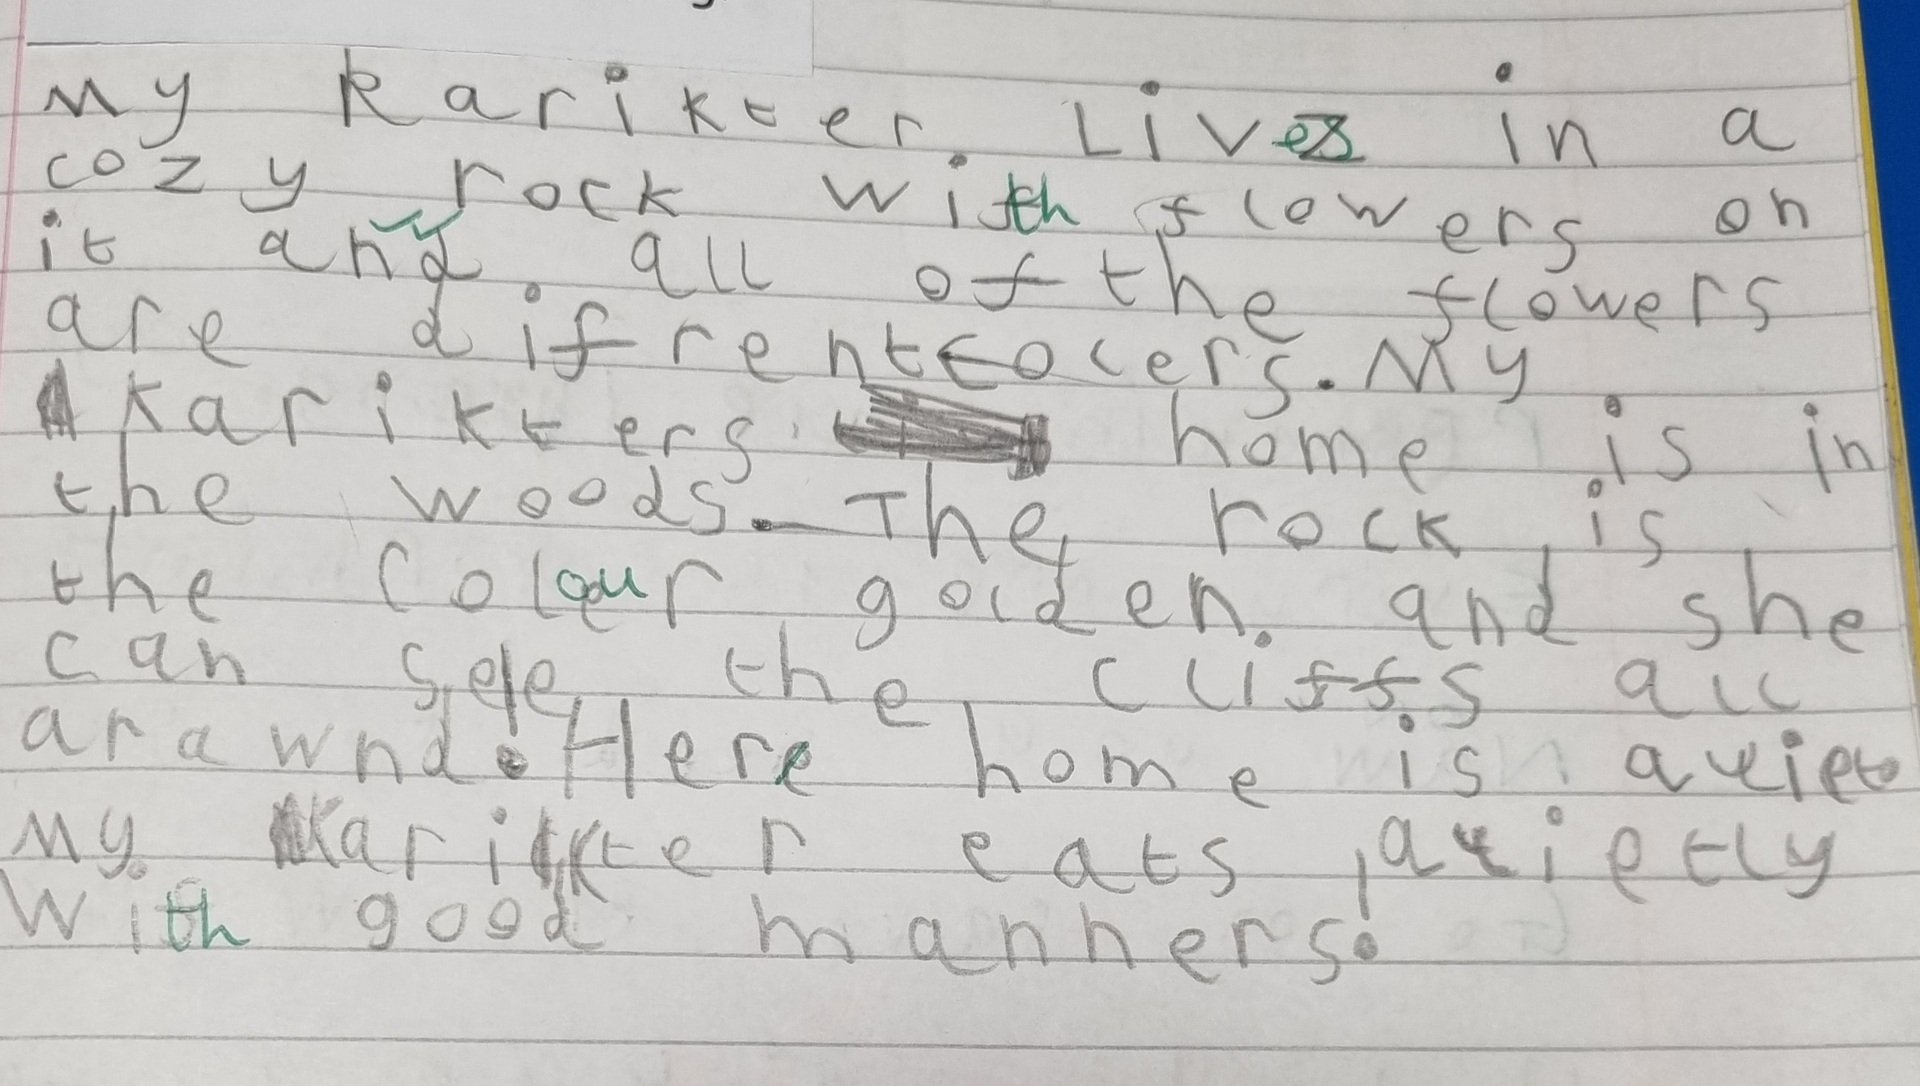 My karikter Lives in a
cozy rock with flowers on
it and all of the flowers
are difrent colers. My
karikters home is in
the woods. The rock is
the colour golden. and she
can see the cliffs all
arawnd. Here home is quiet
My karikter eats quietly
with good manners!